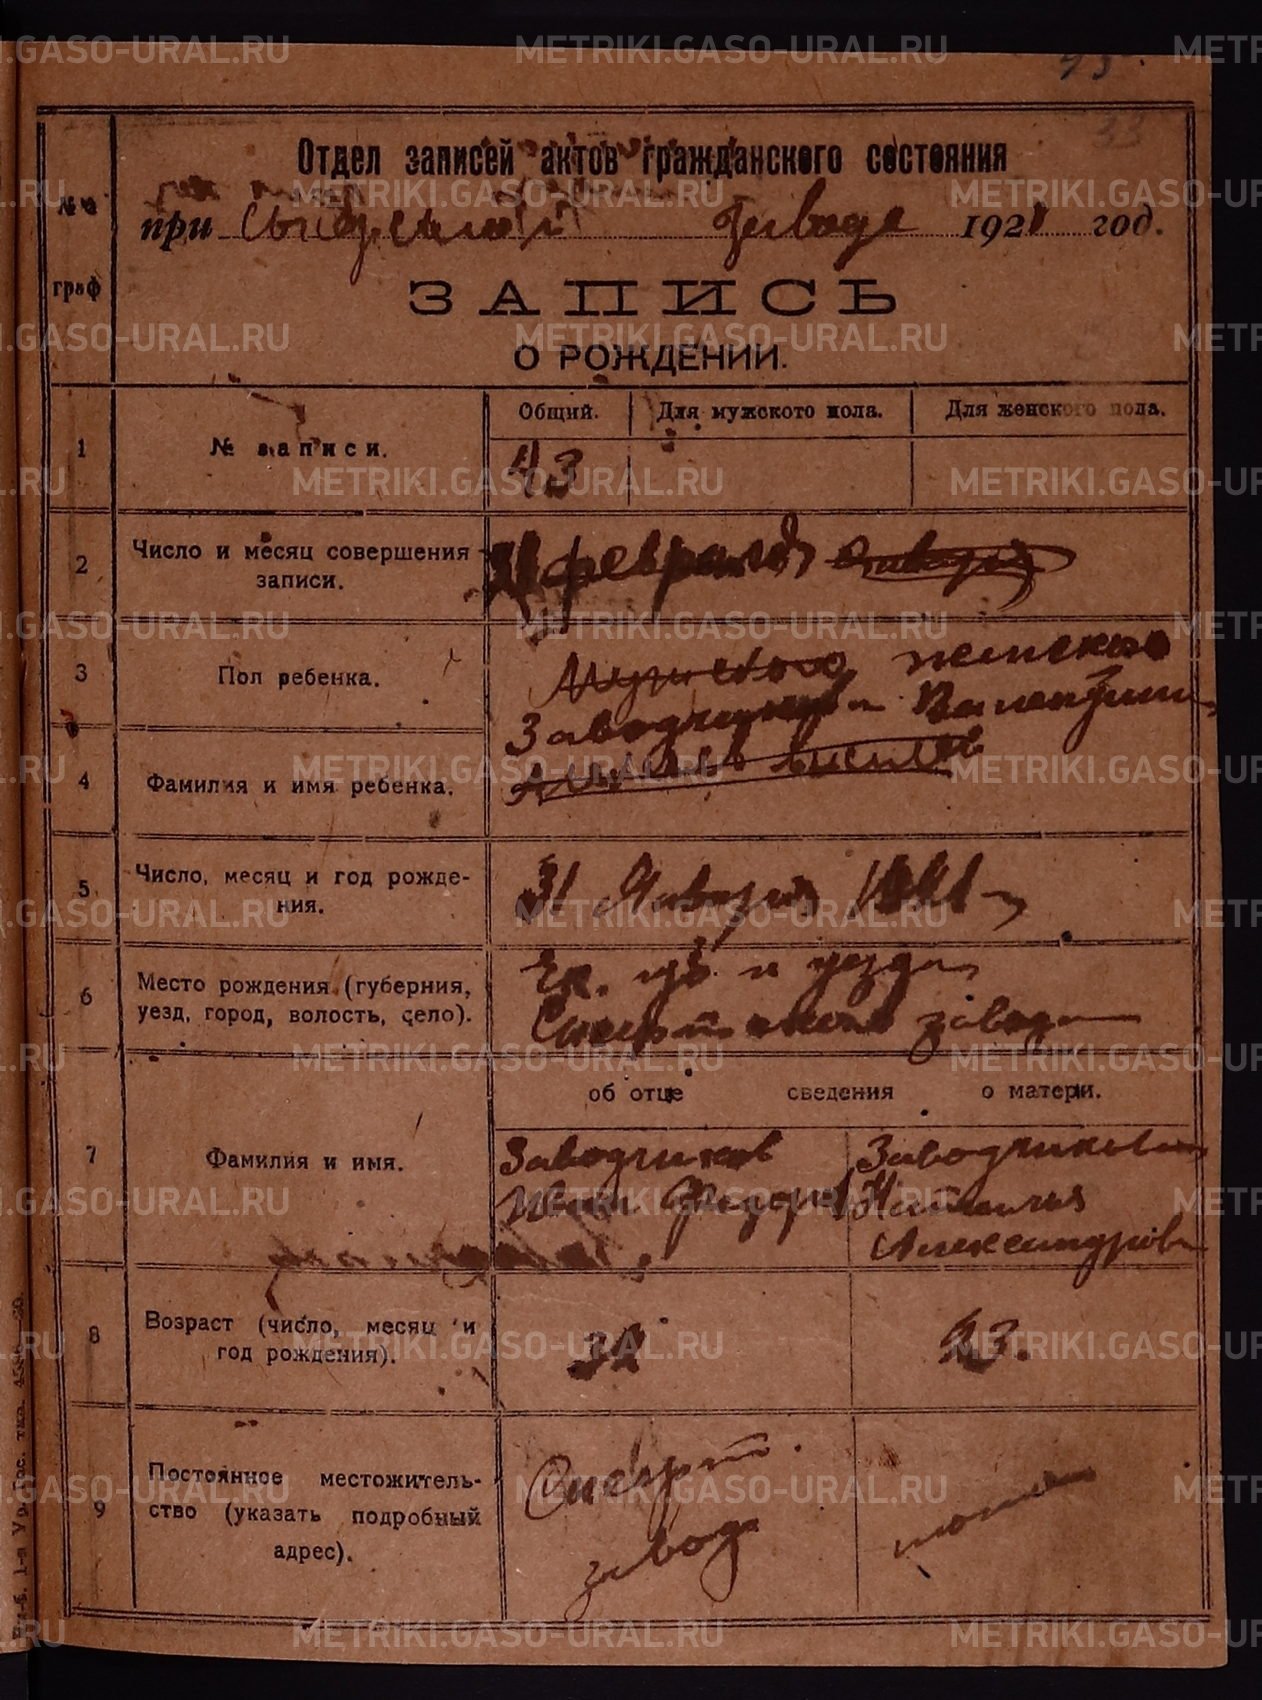 Отдел записей актов гражданского состояния
№№ граф
при заводе 1921 год.
ЗАПИСЬ
О РОЖДЕНИИ.
Общий. Для мужского пола. Для женского пола.
1 № записи. 43
2 Число и месяц совершения записи. февраля января
3 Пол ребенка. Мужского женского
4 Фамилия и имя ребенка. Валентина
5 Число, месяц и год рождения. 31 Января 1921
6 Место рождения (губерния, уезд, город, волость, село). Ек. губ. и уезда
Сысертского завода
об отце сведения о матери.
7 Фамилия и имя. Заводчиков Иван Федоров Заводчикова Наталья Александровна
8 Возраст (число, месяц и год рождения). 32 23.
9 Постоянное местожительство (указать подробный адрес). Сысерт. завода
METRIKI.GASO-URAL.RU